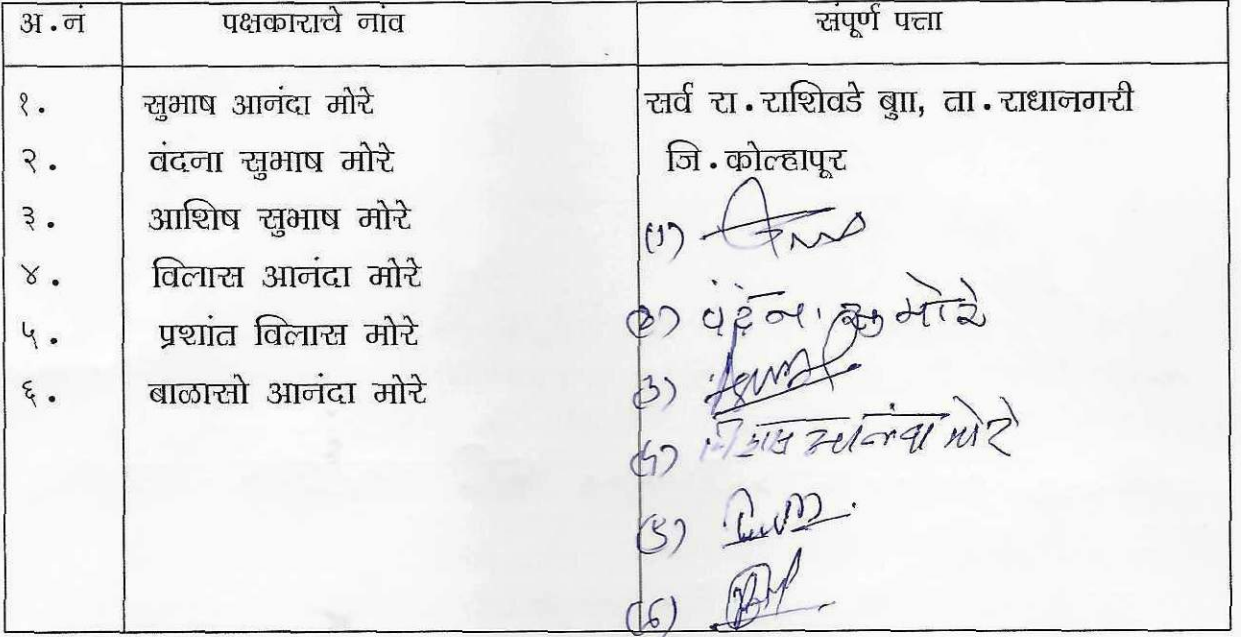 अ.नं पक्षकाराचे नांव संपूर्ण पत्ता
१. सुभाष आनंदा मोरे सर्व रा.राशिवडे बुाा, ता.राधानगरी
२. वंदना सुभाष मोरे जि.कोल्हापूर
३. आशिष सुभाष मोरे (1)
४. विलास आनंदा मोरे
(2) वंदना सु मोरे
५. प्रशांत विलास मोरे
६. बाळासो आनंदा मोरे (3)
(4) विलास आनंदा मोरे
(5)
(6)